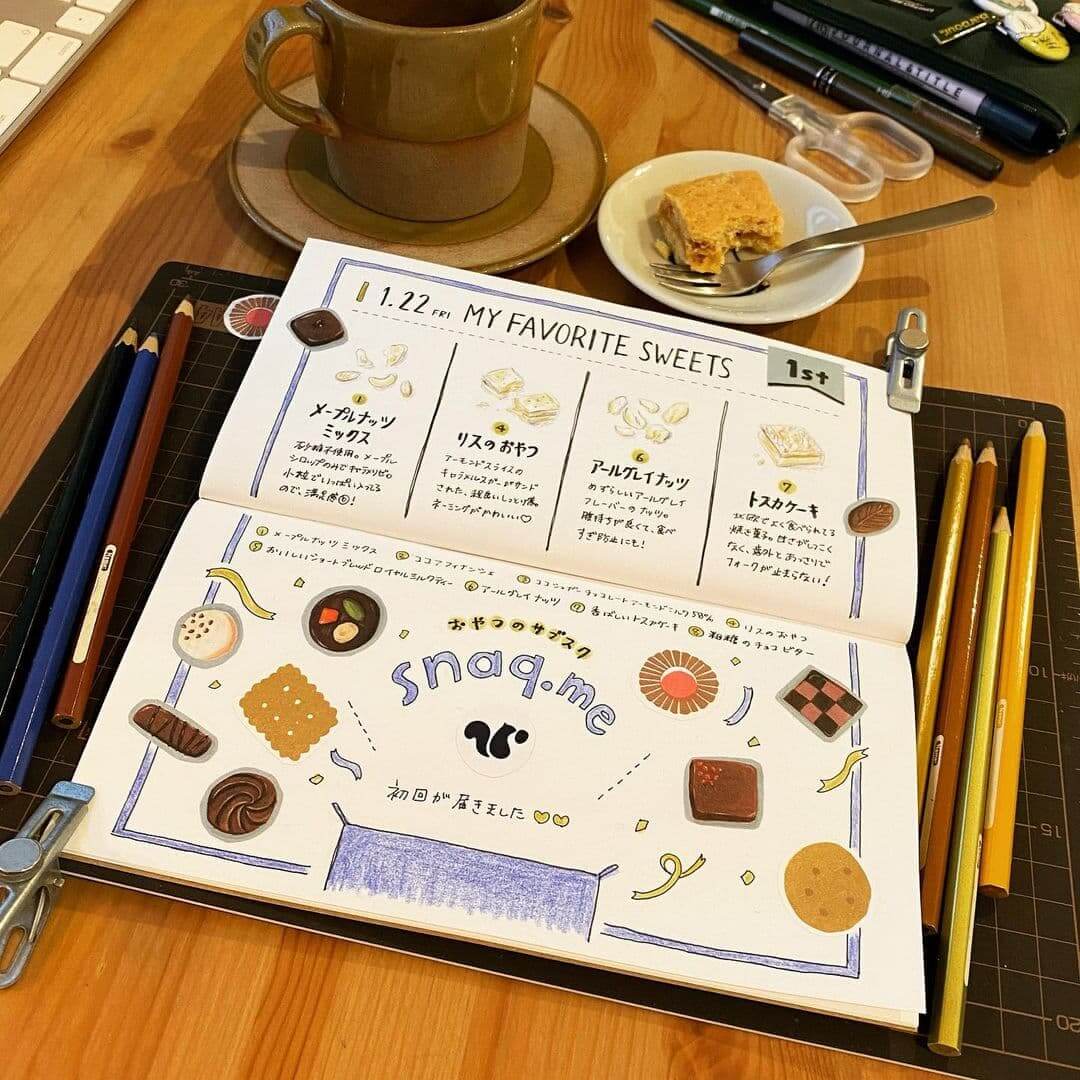 1.22 FRI MY FAVORITE SWEETS
1st
①
メープルナッツ
ミックス
砂糖不使用。メープル
シロップのみでキャラメリゼ。
小粒でいっぱい入ってる
ので、満足感◎!
④
リスのおやつ
アーモンドスライスの
キャラメルヌガーがサンド
された、程良いしっとり感。
ネーミングがかわいい♡
⑥
アールグレイナッツ
めずらしいアールグレイ
フレーバーのナッツ。
腹持ちが良くて、食べ
すぎ防止にも!
⑦
トスカケーキ
北欧でよく食べられてる
焼き菓子。甘さがしつこく
なく、意外とあっさりで
フォークが止まらない!
① メープルナッツミックス ② ココアフィナンシェ ③ チョコレートアーモンドミルク58% ④ リスのおやつ
⑤ おいしいショートブレッドロイヤルミルクティー ⑥ アールグレイナッツ ⑦ 香ばしいトスカケーキ ⑧ 粗糖のチョコビター
おやつのサブスク
snaq.me
初回が届きました
JOURNAL&TITLE
10
15
20